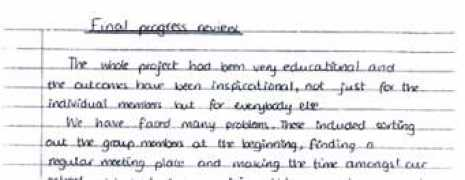 Final progress review
The whole project had been very educational and
the outcomes have been inspirational, not just for the
individual members but for everybody else
We have faced many problems. These included sorting
out the group members at the beginning, finding a
regular meeting place and making the time amongst our